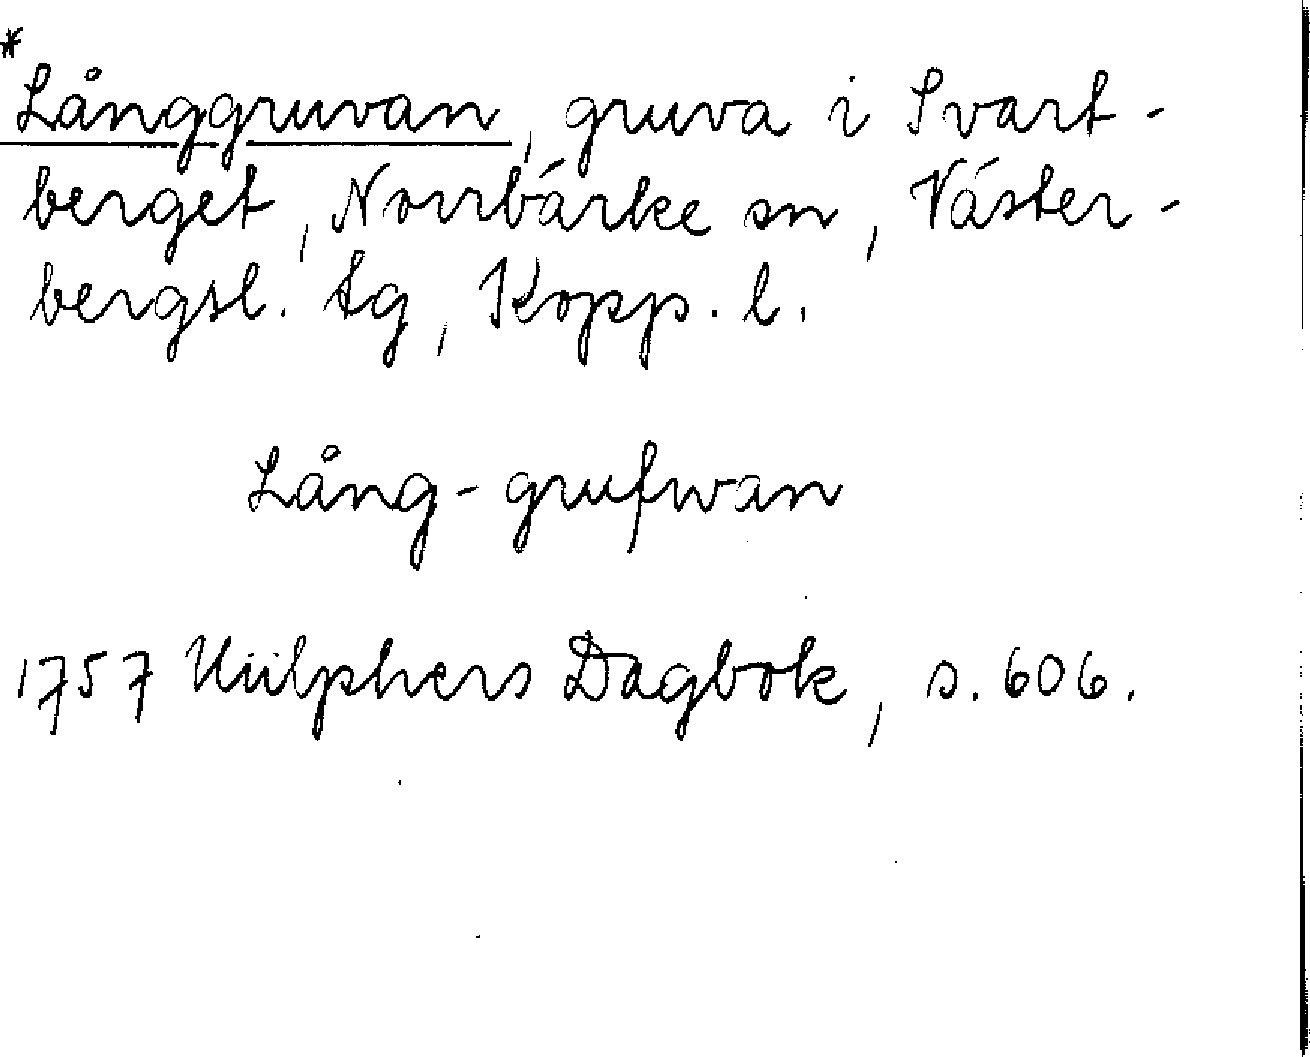 *
Långgruvan, gruva i Svart-
berget, Norrbärke sn, Väster-
bergsl. tg, Kopp. l.
Lång-grufwan
1757 Hülphers Dagbok, s. 606.